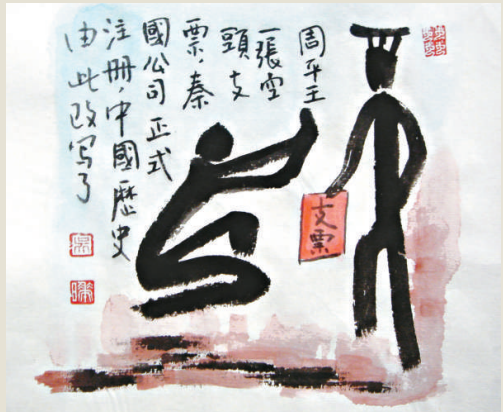 周平王
一張空
頭支
票，秦
國公司正式
注册，中國歷史
由此改写了
支票